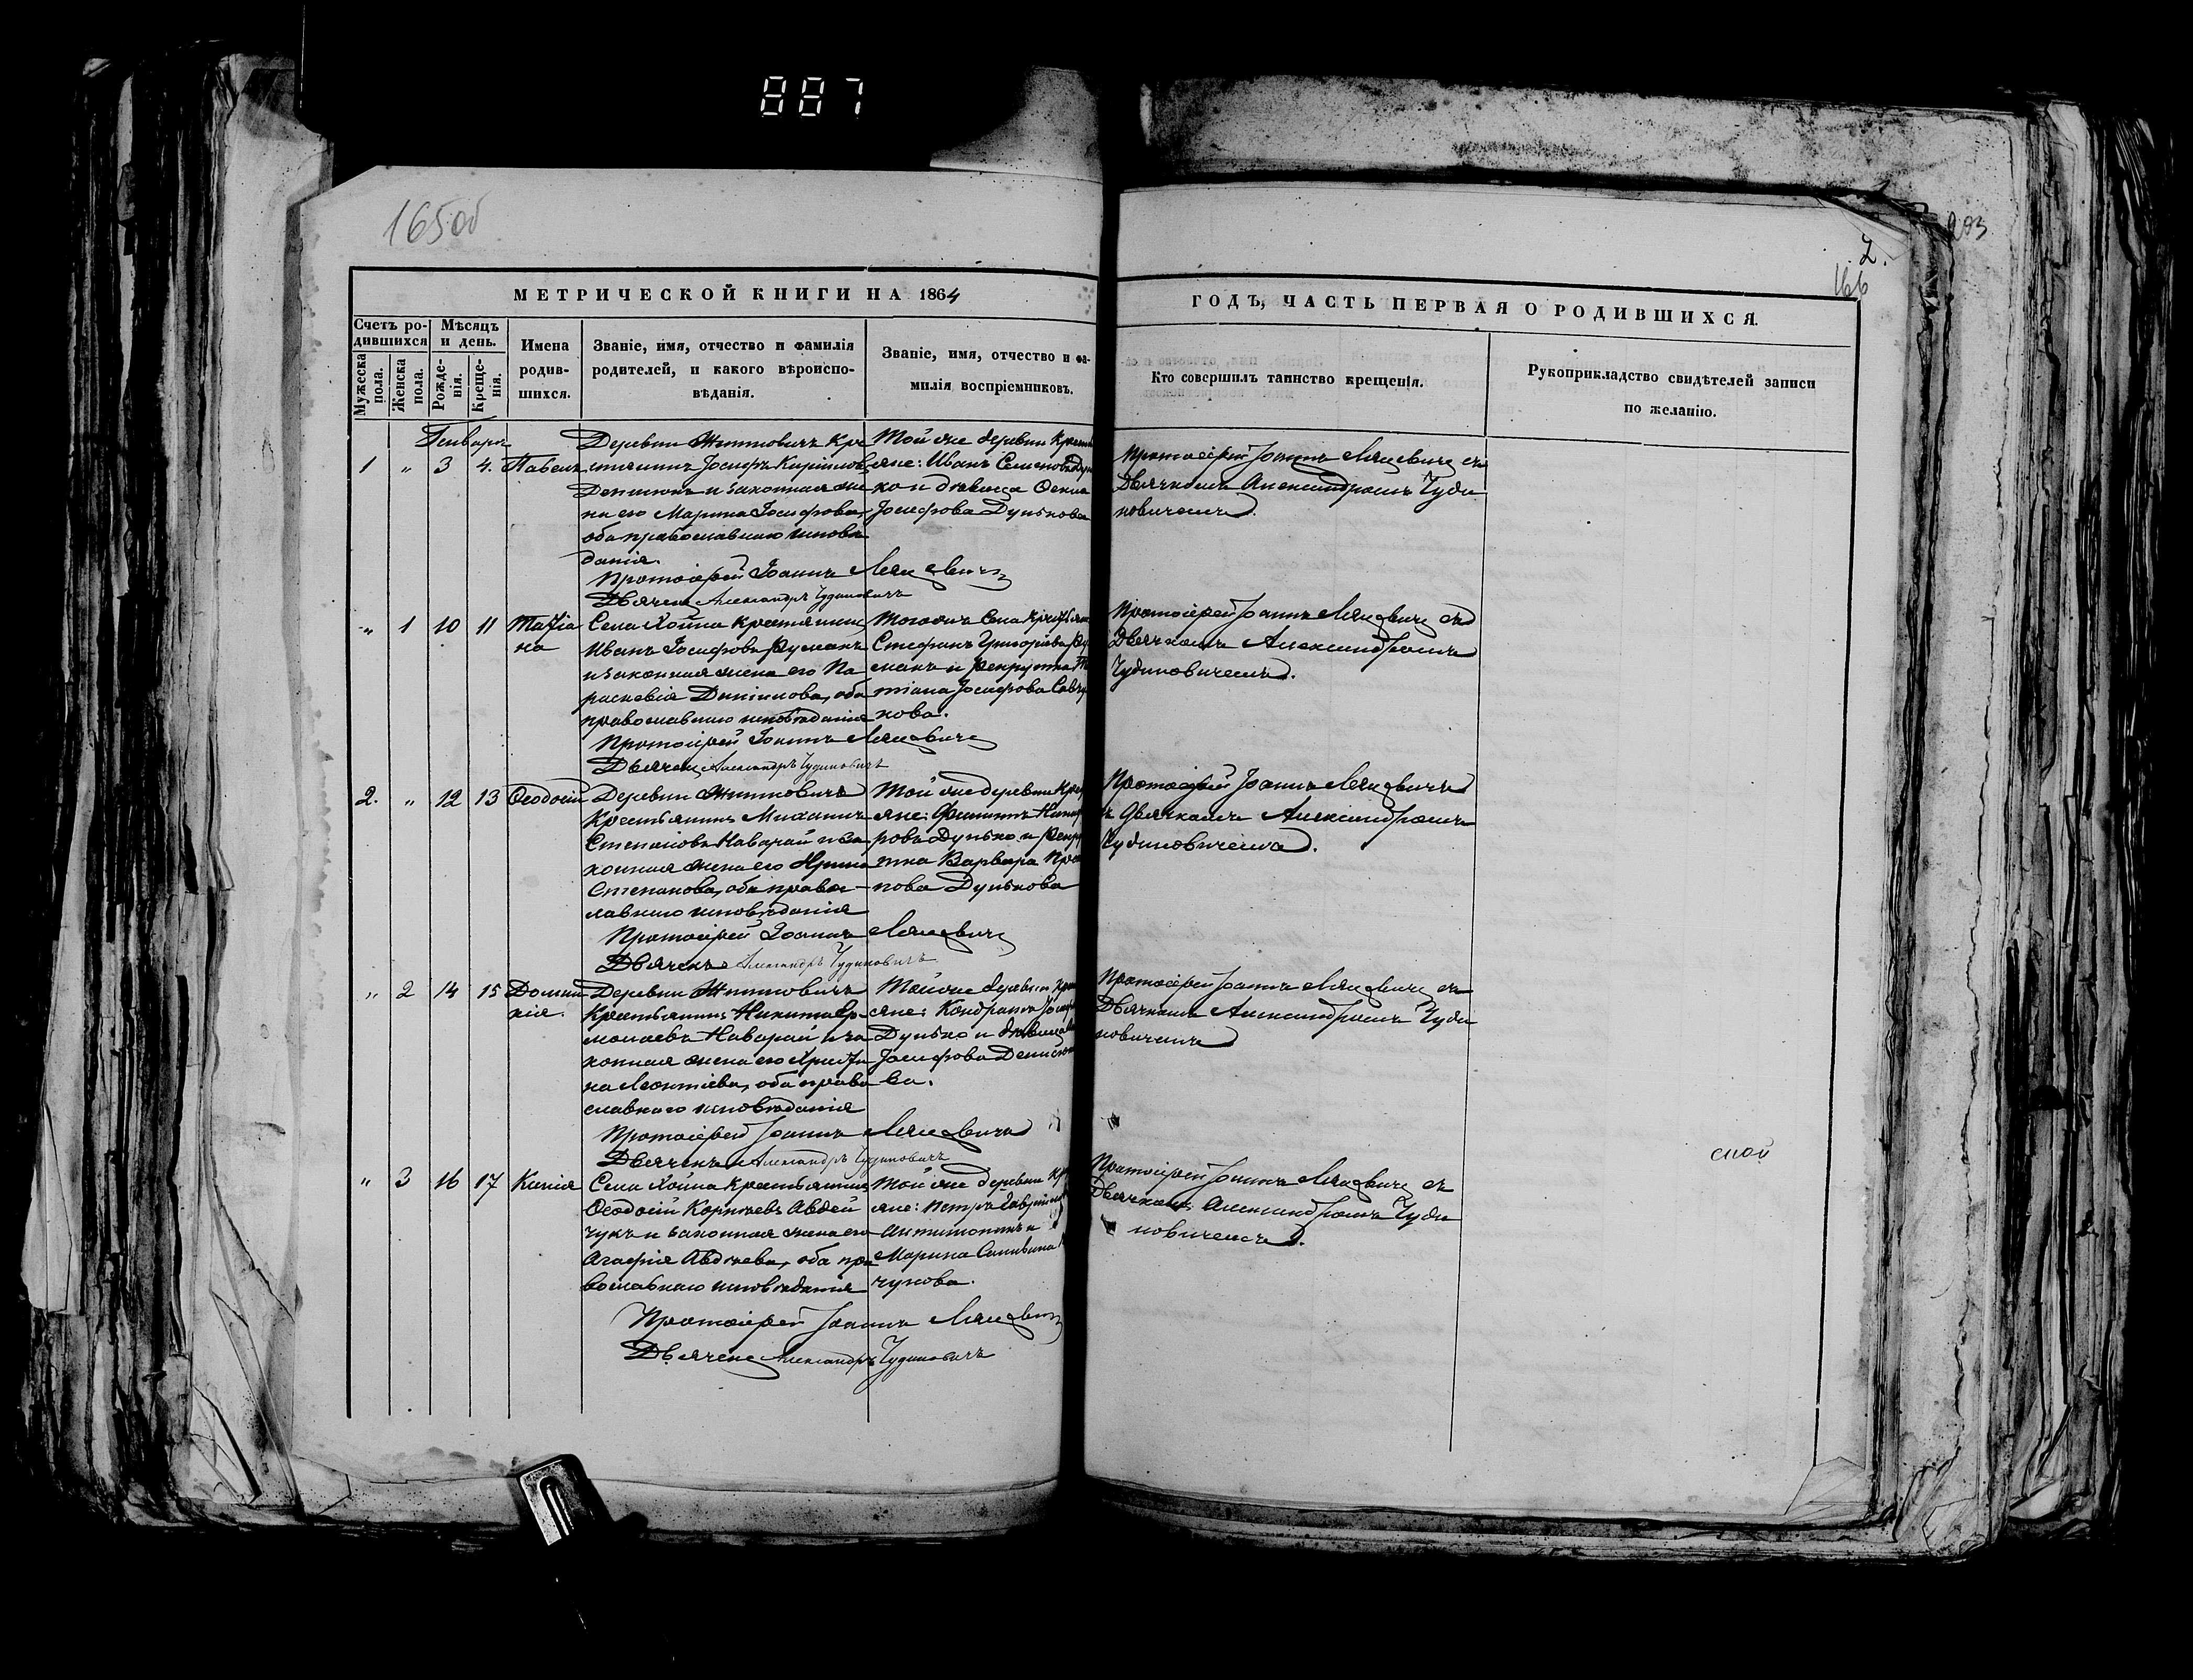 887
165об
293
2.
166
МЕТРИЧЕСКОЙ КНИГИ НА 1864
ГОДЪ, ЧАСТЬ ПЕРВАЯ О РОДИВШИХСЯ.
Счетъ ро-
дившихся
Мѣсяцъ
и день.
Мужеска
пола.
Женска
пола.
Рожде-
нія.
Креще-
нія.
Имена
родив-
шихся.
Званіе, имя, отчество и фамилія
родителей, и какого вѣроиспо-
вѣданія.
Званіе, имя, отчество и фа-
милія воспріемниковъ.
Кто совершилъ таинство крещенія.
Рукоприкладство свидѣтелей записи
по желанію.
Генваря
1 " 3 4. Павелъ
Деревни Житковичъ Кре
стянинъ Іосифъ Кириловъ
Денисюкъ и законная же
на его Марина Іосифова,
оба православнаго исповѣ
данія.
Протоіерей Іоаннъ
Дьячекъ Александръ Чудиновичъ
Той же деревни Крест
яне: Иванъ Семеновъ
ко и дѣвица
Іосифова Дунькова
Протоіерей Іоаннъ съ
Дьячкомъ Александромъ Чуди
новичемъ.
" 1 10 11 Татіа
на
Села Хойна Крестянин
Иванъ Іосифовъ
и законная жена его Па
раскевія оба
православнаго исповѣданія
Протоіерей Іоаннъ
Дьячекъ Александръ Чудиновичъ
Тогожъ Села
Стефанъ Григоріевъ
и Рекрутка
тіана Іосифова
кова.
Протоіерей Іоаннъ съ
Дьячкомъ Александромъ
Чудиновичемъ.
2. " 12 13 Ѳеодосій
Деревни Житковичъ
Крестьянинъ Михаилъ
Степановъ Наварай и за
конная жена его Ирина
Степанова, оба правос
лавнаго исповѣданія
Протоіерей Іоаннъ
Дьячекъ Александръ Чудиновичъ
Той же деревни
яне: Филиппъ
ровъ Дунько и
тка Варвара
пова Дунькова
Протоіерей Іоаннъ
Дьячкомъ Александромъ
Чудиновичемъ.
" 2 14 15 Домни
кія.
Деревни Житковичъ
Крестьянинъ Никита Ер-
молаевъ Наварай и за
конная жена его Христи
на Леонтіева, оба право
славнаго исповѣданія
Протоіерей Іоаннъ
Дьячекъ Александръ Чудиновичъ
Той же деревни
яне: Кондратъ
Дунько и дѣвица
Іосифова Денисюко
ва.
Протоіерей Іоаннъ съ
Дьячкомъ Александромъ Чуди
новичемъ
" 3 16 17 Ксенія
Села Хойна Крестьянинъ
Ѳеодосій Корнѣевъ Авдей
чукъ и законная жена его
Агафія Авдѣева, оба пра
вославнаго исповѣданія
Протоіерей Іоаннъ
Дьячекъ Александръ Чудиновичъ
Той же деревни
яне: Петръ
и
Марина
чукова.
Протоіерей Іоаннъ съ
Дьячкомъ Александромъ Чуди
новичемъ.